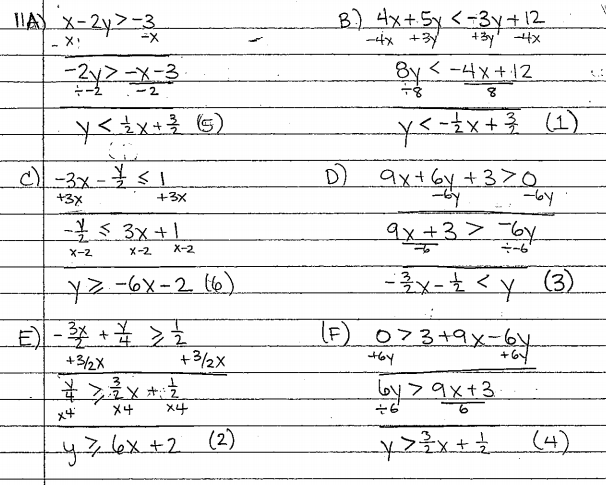 11A) x-2y>-3
-x -x
-2y> -x-3
÷-2 -2
y < 1/2x + 3/2 (5)
B.) 4x+5y < -3y+12
-4x +3y +3y -4x
8y < -4x+12
÷8 8
y < -1/2x + 3/2 (1)
C) -3x - y/2 ≤ 1
+3x +3x
-y/2 ≤ 3x+1
x-2 x-2 x-2
y ≥ -6x-2 (6)
D) 9x+6y+3>0
-6y -6y
9x+3 > -6y
-6 ÷-6
-3/2x - 1/2 < y (3)
E) -3x/2 + y/4 ≥ 1/2
+3/2x +3/2x
y/4 ≥ 3/2x + 1/2
x4 x4 x4
y ≥ 6x+2 (2)
(F) 0>3+9x-6y
+6y +6y
6y > 9x+3
÷6 6
y > 3/2x + 1/2 (4)